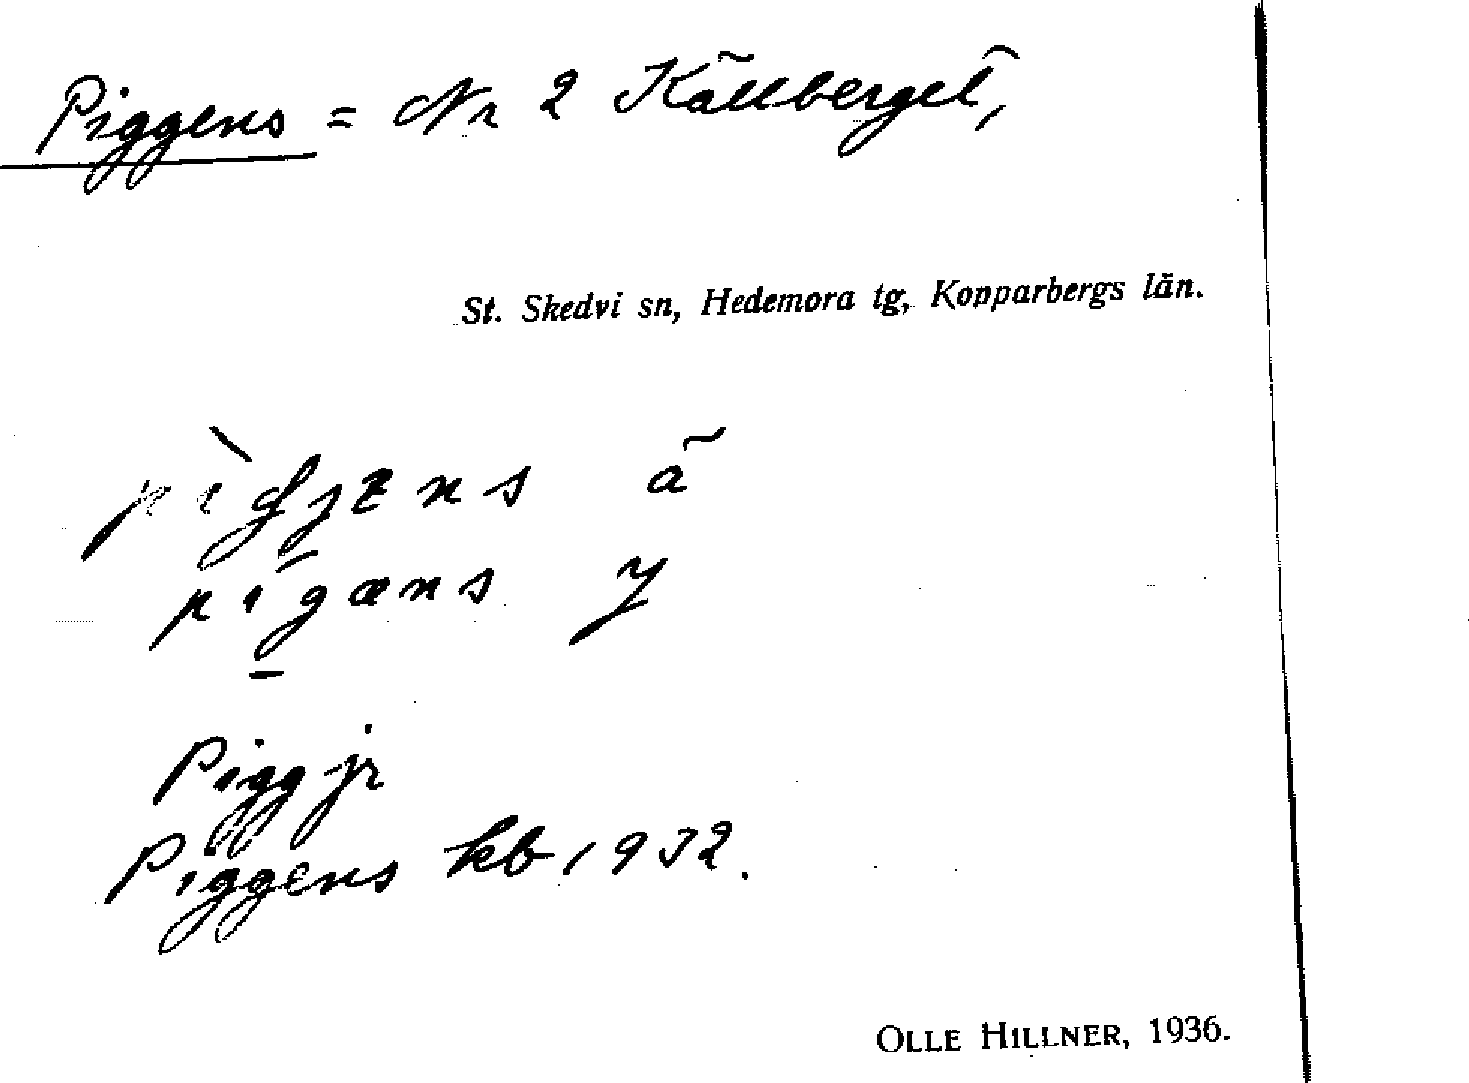 Piggens = Nr 2 Källberget,
St. Skedvi sn, Hedemora tg, Kopparbergs län.
ä
pigæns y
Pigg jr
Piggens kb 1932.
OLLE HILLNER, 1936.